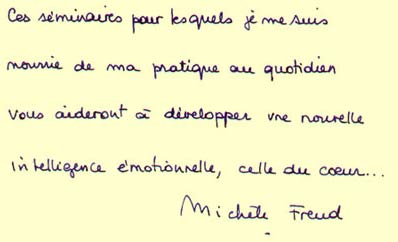 Ces séminaires pour lesquels je me suis
nourrie de ma pratique au quotidien
vous aideront à développer une nouvelle
intelligence émotionnelle, celle du coeur...
Michèle Freud